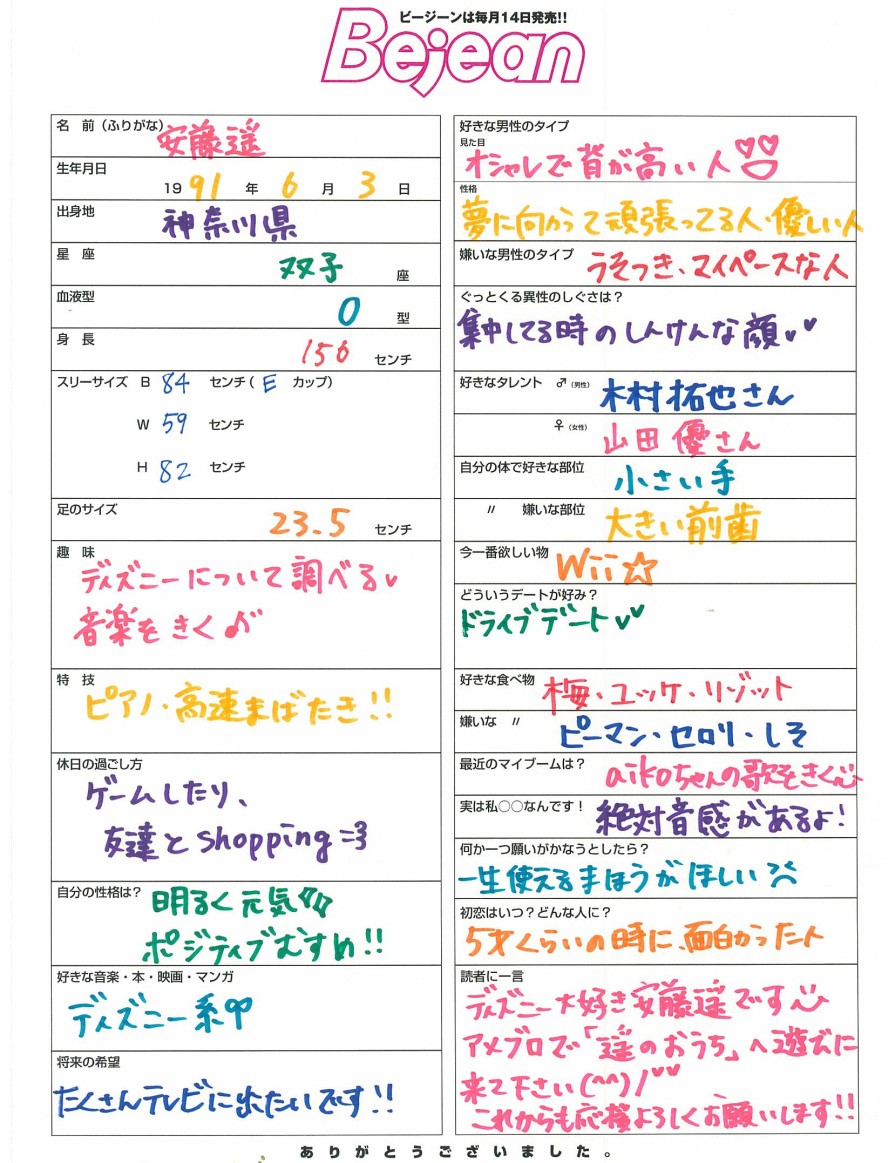 ビージーンは毎月14日発売!!
Bejean
名 前(ふりがな) 安藤遥
生年月日
1991年 6月 3日
出身地 神奈川県
星 座 双子 座
血液型 O 型
身 長 150 センチ
スリーサイズ B 84 センチ( E カップ)
W 59 センチ
H 82 センチ
足のサイズ 23.5 センチ
趣 味
ディズニーについて調べる♥
音楽をきく♪
特 技
ピアノ・高速まばたき!!
休日の過ごし方
ゲームしたり、
友達とshopping=3
自分の性格は? 明るく元気
ポジティブむすめ!!
好きな音楽・本・映画・マンガ
ディズニー系
将来の希望
たくさんテレビに出たいです!!
好きな男性のタイプ
見た目
オシャレで背が高い人
性格
夢に向かって頑張ってる人・優しい人
嫌いな男性のタイプ うそつき、マイペースな人
ぐっとくる異性のしぐさは?
集中してる時のしんけんな顔♥♥
好きなタレント ♂(男性) 木村拓也さん
♀(女性) 山田優さん
自分の体で好きな部位 小さい手
〃 嫌いな部位 大きい前歯
今一番欲しい物 Wii☆
どういうデートが好み?
ドライブデート♥♥
好きな食べ物 梅・ユッケ・リゾット
嫌いな 〃 ピーマン・セロリ・しそ
最近のマイブームは? aikoちゃんの歌をきく
実は私○○なんです! 絶対音感があるよ!
何か一つ願いがかなうとしたら?
一生使えるまほうがほしい
初恋はいつ?どんな人に?
5才くらいの時に、面白かった人
読者に一言
ディズニー大好き安藤遥です
アメブロで「遥のおうち」へ遊びに
来て下さい(^^)/♥♥
これからも応援よろしくお願いします!!
ありがとうございました。